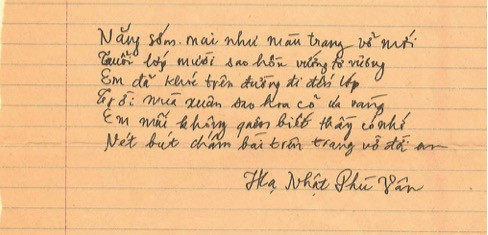 Nắng sớm mai như màu trang vở mới
Tuổi lớp mười sao hồn vướng tơ vương
Em đã khóc trên đường đi đến lớp
Trời mùa xuân sao hoa cỏ úa vàng
Em mãi không quên biết thầy có nhớ
Nét bút chấm bài trên trang vở đời em
Hạ Nhật Phù Vân